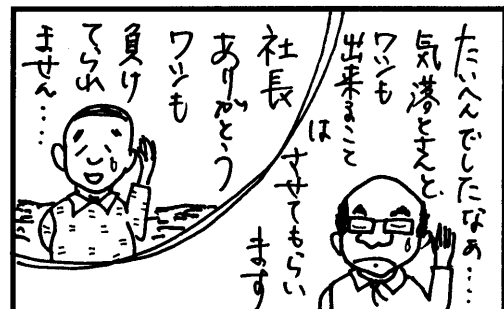 たいへんでしたなぁ・・・・
気落とさんと、
ワシも
出来ること
は
させてもらい
ます
社長
ありがとう
ワシも
負け
てられ
ません・・・・